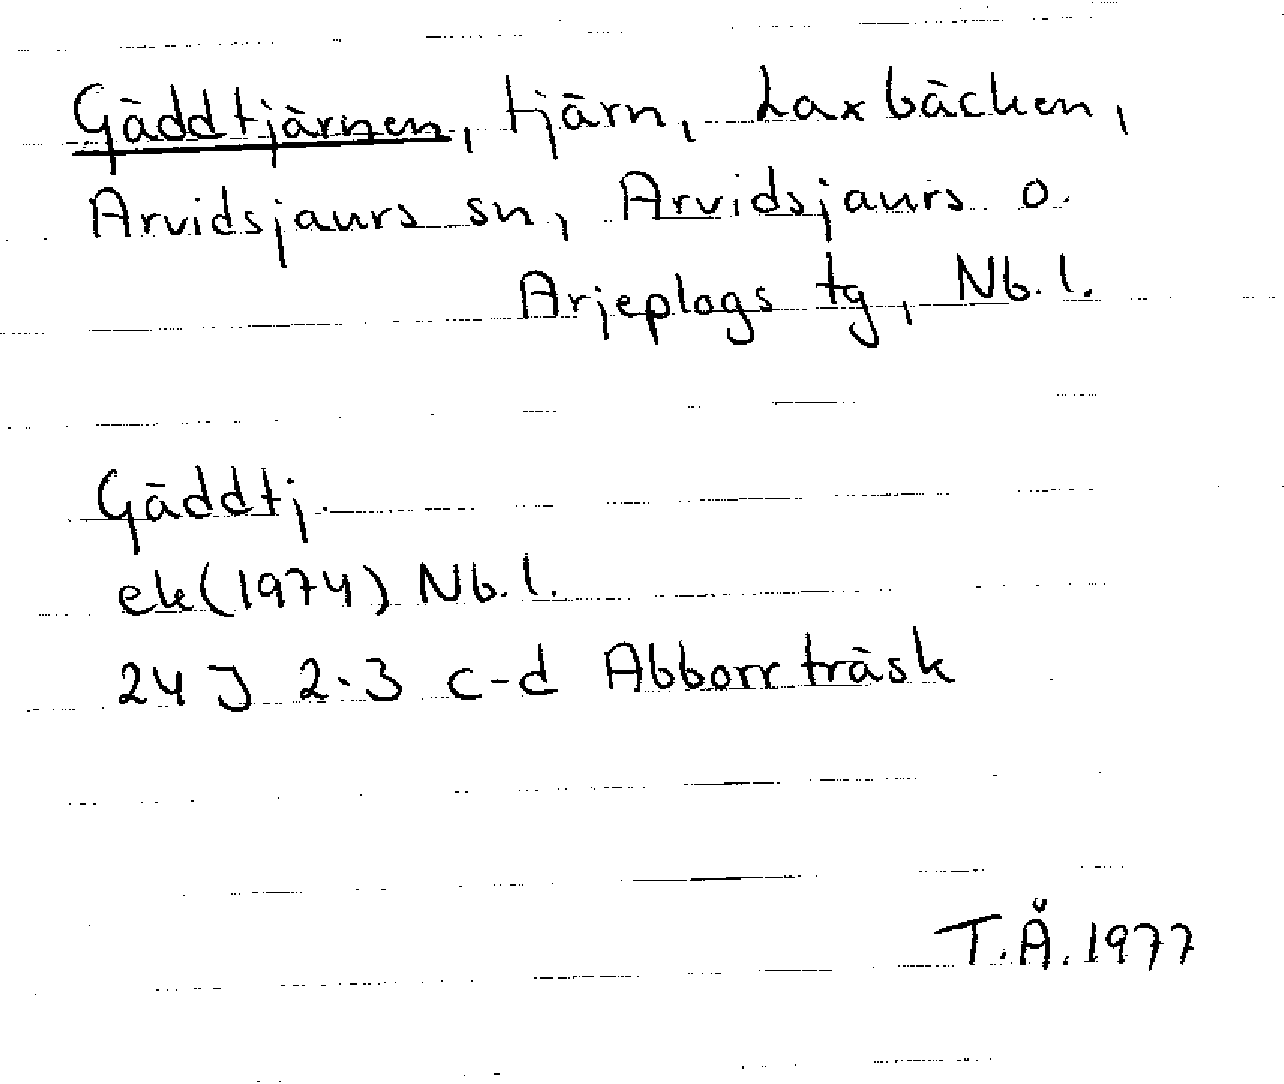 Gäddtjärnen, tjärn, Laxbäcken,
Arvidsjaurs sn, Arvidsjaurs o.
Arjeplogs tg, Nb. l.
Gäddtj.
ek (1974) Nb. l.
24 J 2-3 c-d Abborrträsk
T.Å. 1977